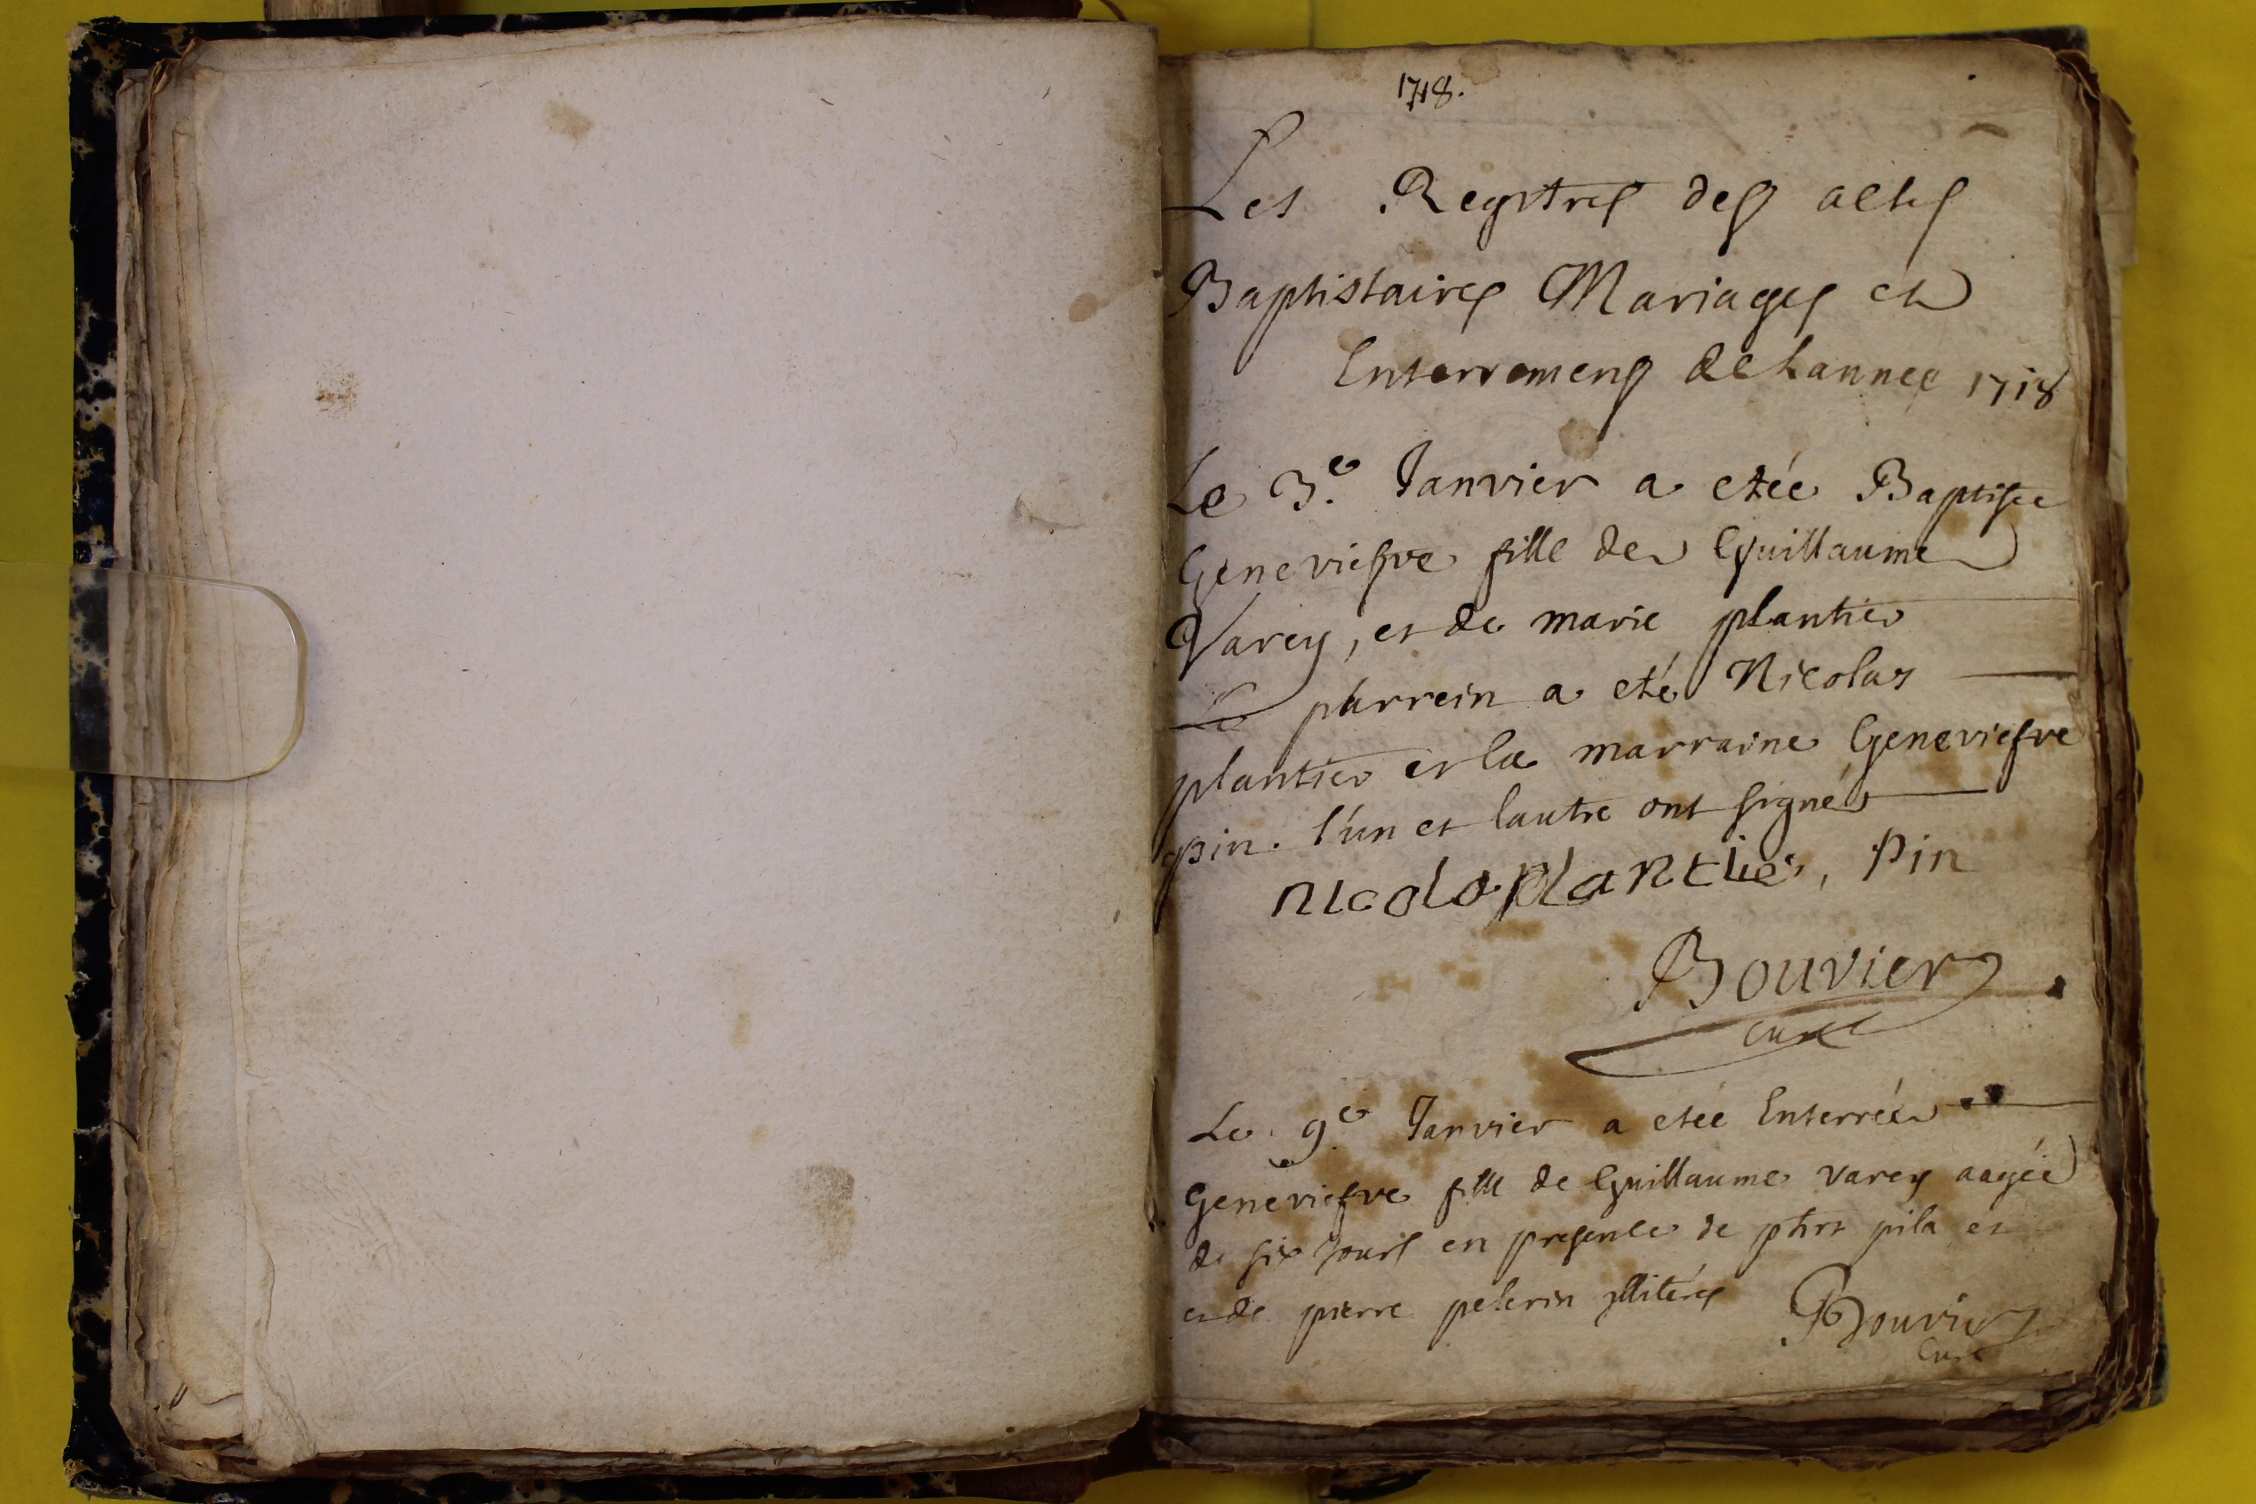 1718.
Les Regitres des actes
Baptistaires Mariages et
Enterremens de Lannee 1718
Le 3.e Janvier a etée Baptisée
Geneviefve fille de Guillaume
Varey, et de marie plantier
Le parrein a eté Nicolas
plantier et la marraine Geneviefve
pin. l'un et lautre ont signés
nicola plantier, pin
Bouvier
curé
Le 9e Janvier a etée Enterrée
Geneviefve fille de Guillaume varey aagée
de six jours en presence de pila et
et de pierre pelerin illiterés
Bouvier
Curé